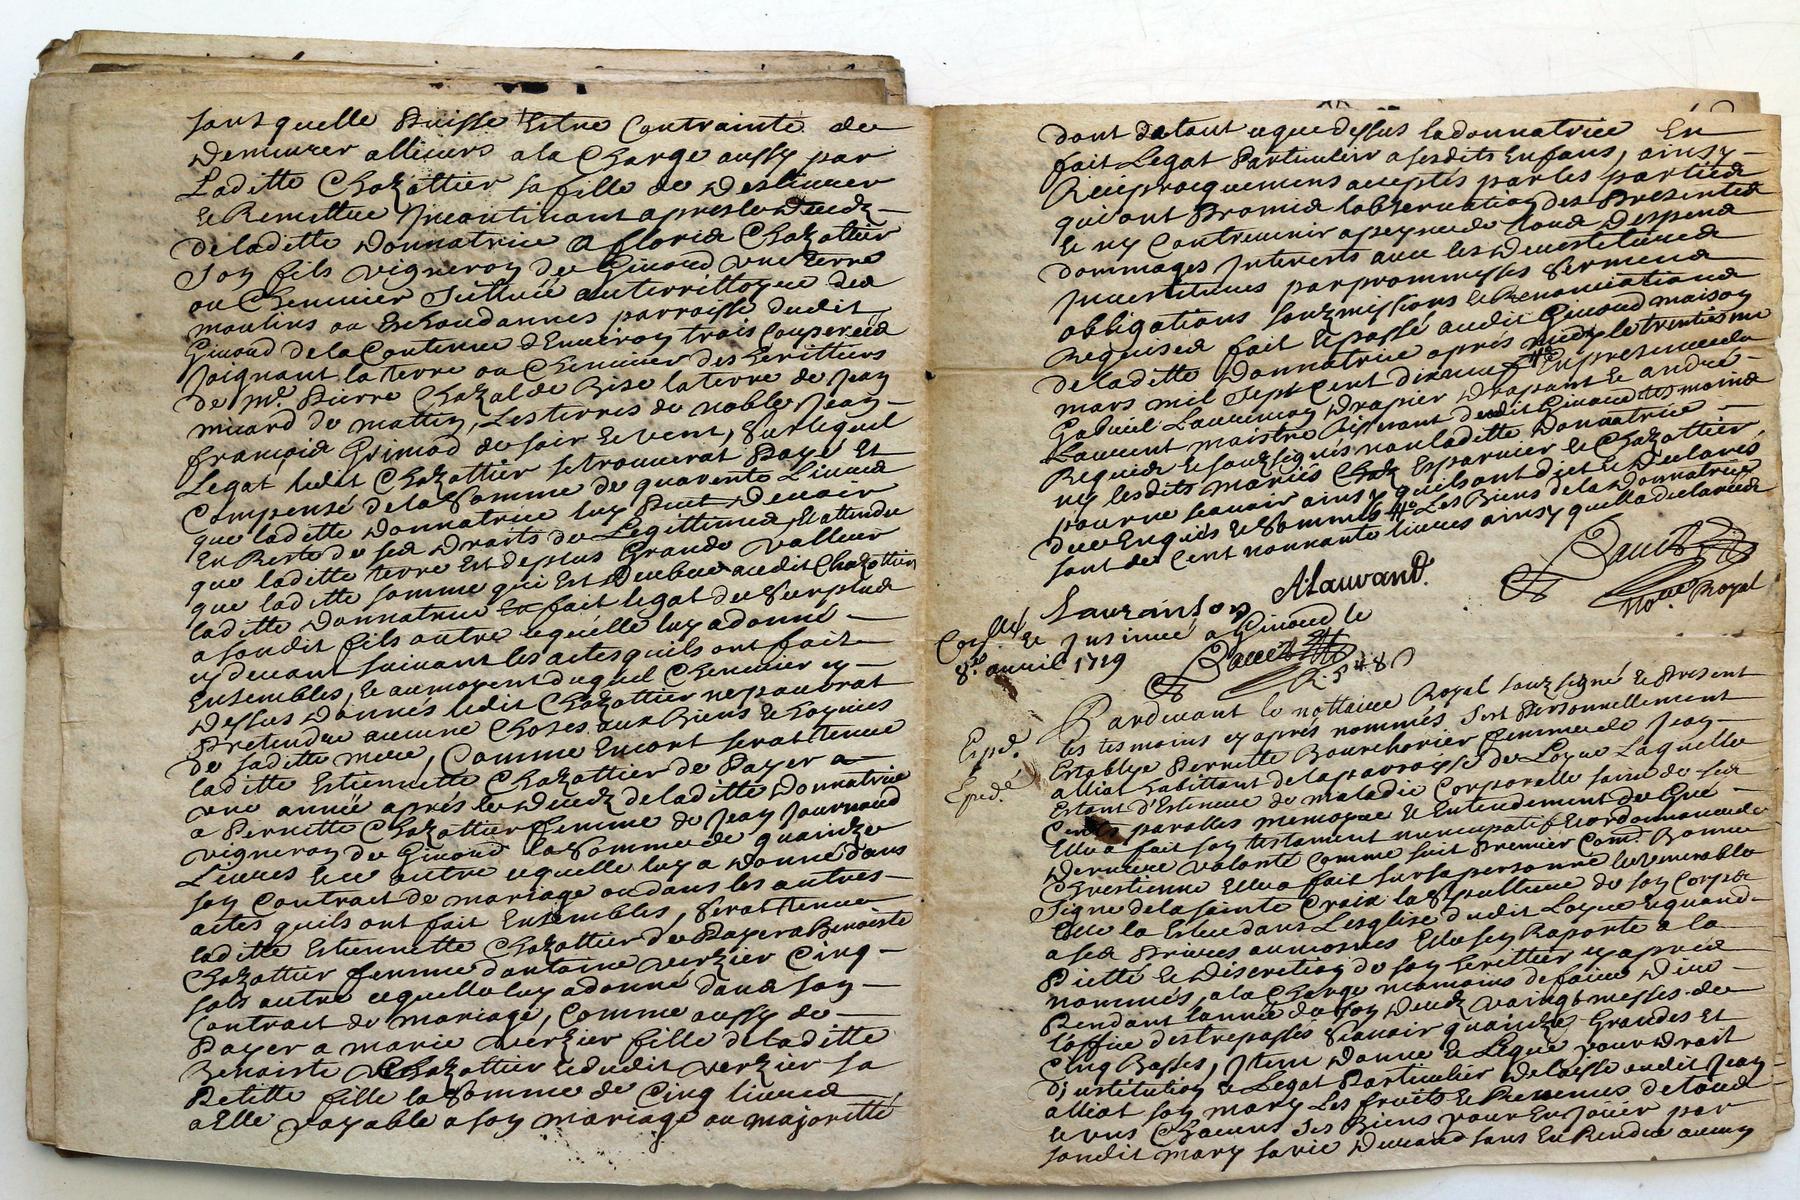 sans quelle Puisse Estre Contrainte de
Demeurer allieurs a la Charge aussy par
Laditte Chazottier sa fille de Deslivrer
et Remettre Incontinant apres le Deced
de laditte Donnatrice a floris Chazottier
Son fils vigneron de Givord une terre
ou Chennier Scittuée au territtoyre des
moulins ou Eschaudannes parroisse dudit
Givord de la Contenue d'Environ trois Couperées
Joignant la terre ou Chennier des heritiers
de Me. Pierre Chazal de Bise la terre de Jean
muard de mattin, Les terres de noble Jean
françois Grimod de soir et vent, Surlequel
Legat ledit Chazottier se trouverat Payé Et
Compensé de la Somme de quarente Livres
que laditte Donnatrice luy Peut Devoir
En Reste de ses Droits de Legittimes, Et attendu
que laditte terre Est de plus Grande valleur
que laditte somme qui Est Deube audit Chazottier
laditte Donnatrice En fait legat du Surplus
a sondit fils outre cequelle luy a donné
cy devant suivant les actes quils ont fait
Ensembles, Et au moyen duquel Chennier cy
Dessus Donnés ledit Chazottier ne pouvrat
Pretendre aucune Choses aux Biens et hoyries
de saditte mere, Comme Encore serat tenue
laditte Estiennette Chazottier de Payer a
une année aprés le Deced de laditte Donnatrice
a Pernette Chazottier femme de Jean Journoud
vigneron de Givord la Somme de quainze
Livres Et ce outre cequelle luy a Donné dans
son Contrat de mariage ou dans les autres
actes quils ont fait Ensembles, Serat tenue
laditte Estiennette Chazottier de Payer a Benoiste
Chazottier femme dantoine verzier Cinq
sols outre cequelle luy a donné dans son
Contrat de mariage, Comme aussy de
Payer a marie verzier fille de laditte
Benoiste Chazottier et dudit verzier sa
Petitte fille la Somme de Cinq livres
a Elle payable a son mariage ou majoritté
dont de tout ceque dessus la donnatrice En
fait Legat Particulier a sesdits Enfans, ainsy
Reciproquement acceptés par les parties
qui ont Promis l'observation des Presentes
et ny Contrevenir a peyne de tous Despens
dommages Interests avec les Devestitures
Investitures par prommesses Serment
obligations soubzmissions et Renonciations
Requises fait Et passé audit Givord maison
de laditte Donnatrice aprés midy le trentiesme
mars mil sept Cent dixneuf En presence de
Gabriel Lauranson Drapier Drapant et andré
Laurent maistre audit Givord tesmoins
Requis et soubzsignés non laditte Donnatrice
ny lesdits mariés Esparvier et Chazottier
pour ne scavoir ainsy quils ont dict et Declarés
de ce Enquis et Sommés Les Biens de la Donnatrice
sont de Cent nonnante livres ainsy quella declarées
Lauranson Alauvand.
No.re Royal
Con.llé Et Insinué a Givord le
8.e avril 1719
Expe.
Expe.
Pardevant le nottaire Royal soubzsigné Et Present
les tesmoins cy aprés nommés Sest Personnellement
Establye Pernette Bourchorier femme de Jean
alliot habittant de la parroisse de Loyre Laquelle
Estant d'Estenue de maladie Corporelle saine de ses
parolles memoyre et Entendement de Gré
Ellea fait son testament nuncupatif Et ordonnance de
Derniere volonté Comme suit Premier Com.e Bonne
Chrestienne Ellea fait sur sa personne le venerable
Signe de la sainte Croix la Sepulture de son Corps
Elle la Eslue dans Lesglise dudit Loyre Et quand
a ses Prieres aumosnes Elle sen Raporte a la
Pietté et Discretion de son heritier cy aprés
nommés, a la Charge neamoins de faire Dire
Pendant lannée de son Deced vaingt messes de
loffice des trepassés Scavoir quainze Grandes Et
Cinq Basses, Item Donne et Legue pour Droit
d'institution et Legat Particulier Delaisse audit Jean
alliot son mary Les fruits et Revenus de tous
et uns Chacuns ses Biens pour En Jouir par
sondit mary sa vie Durand sans En Rendre aucun